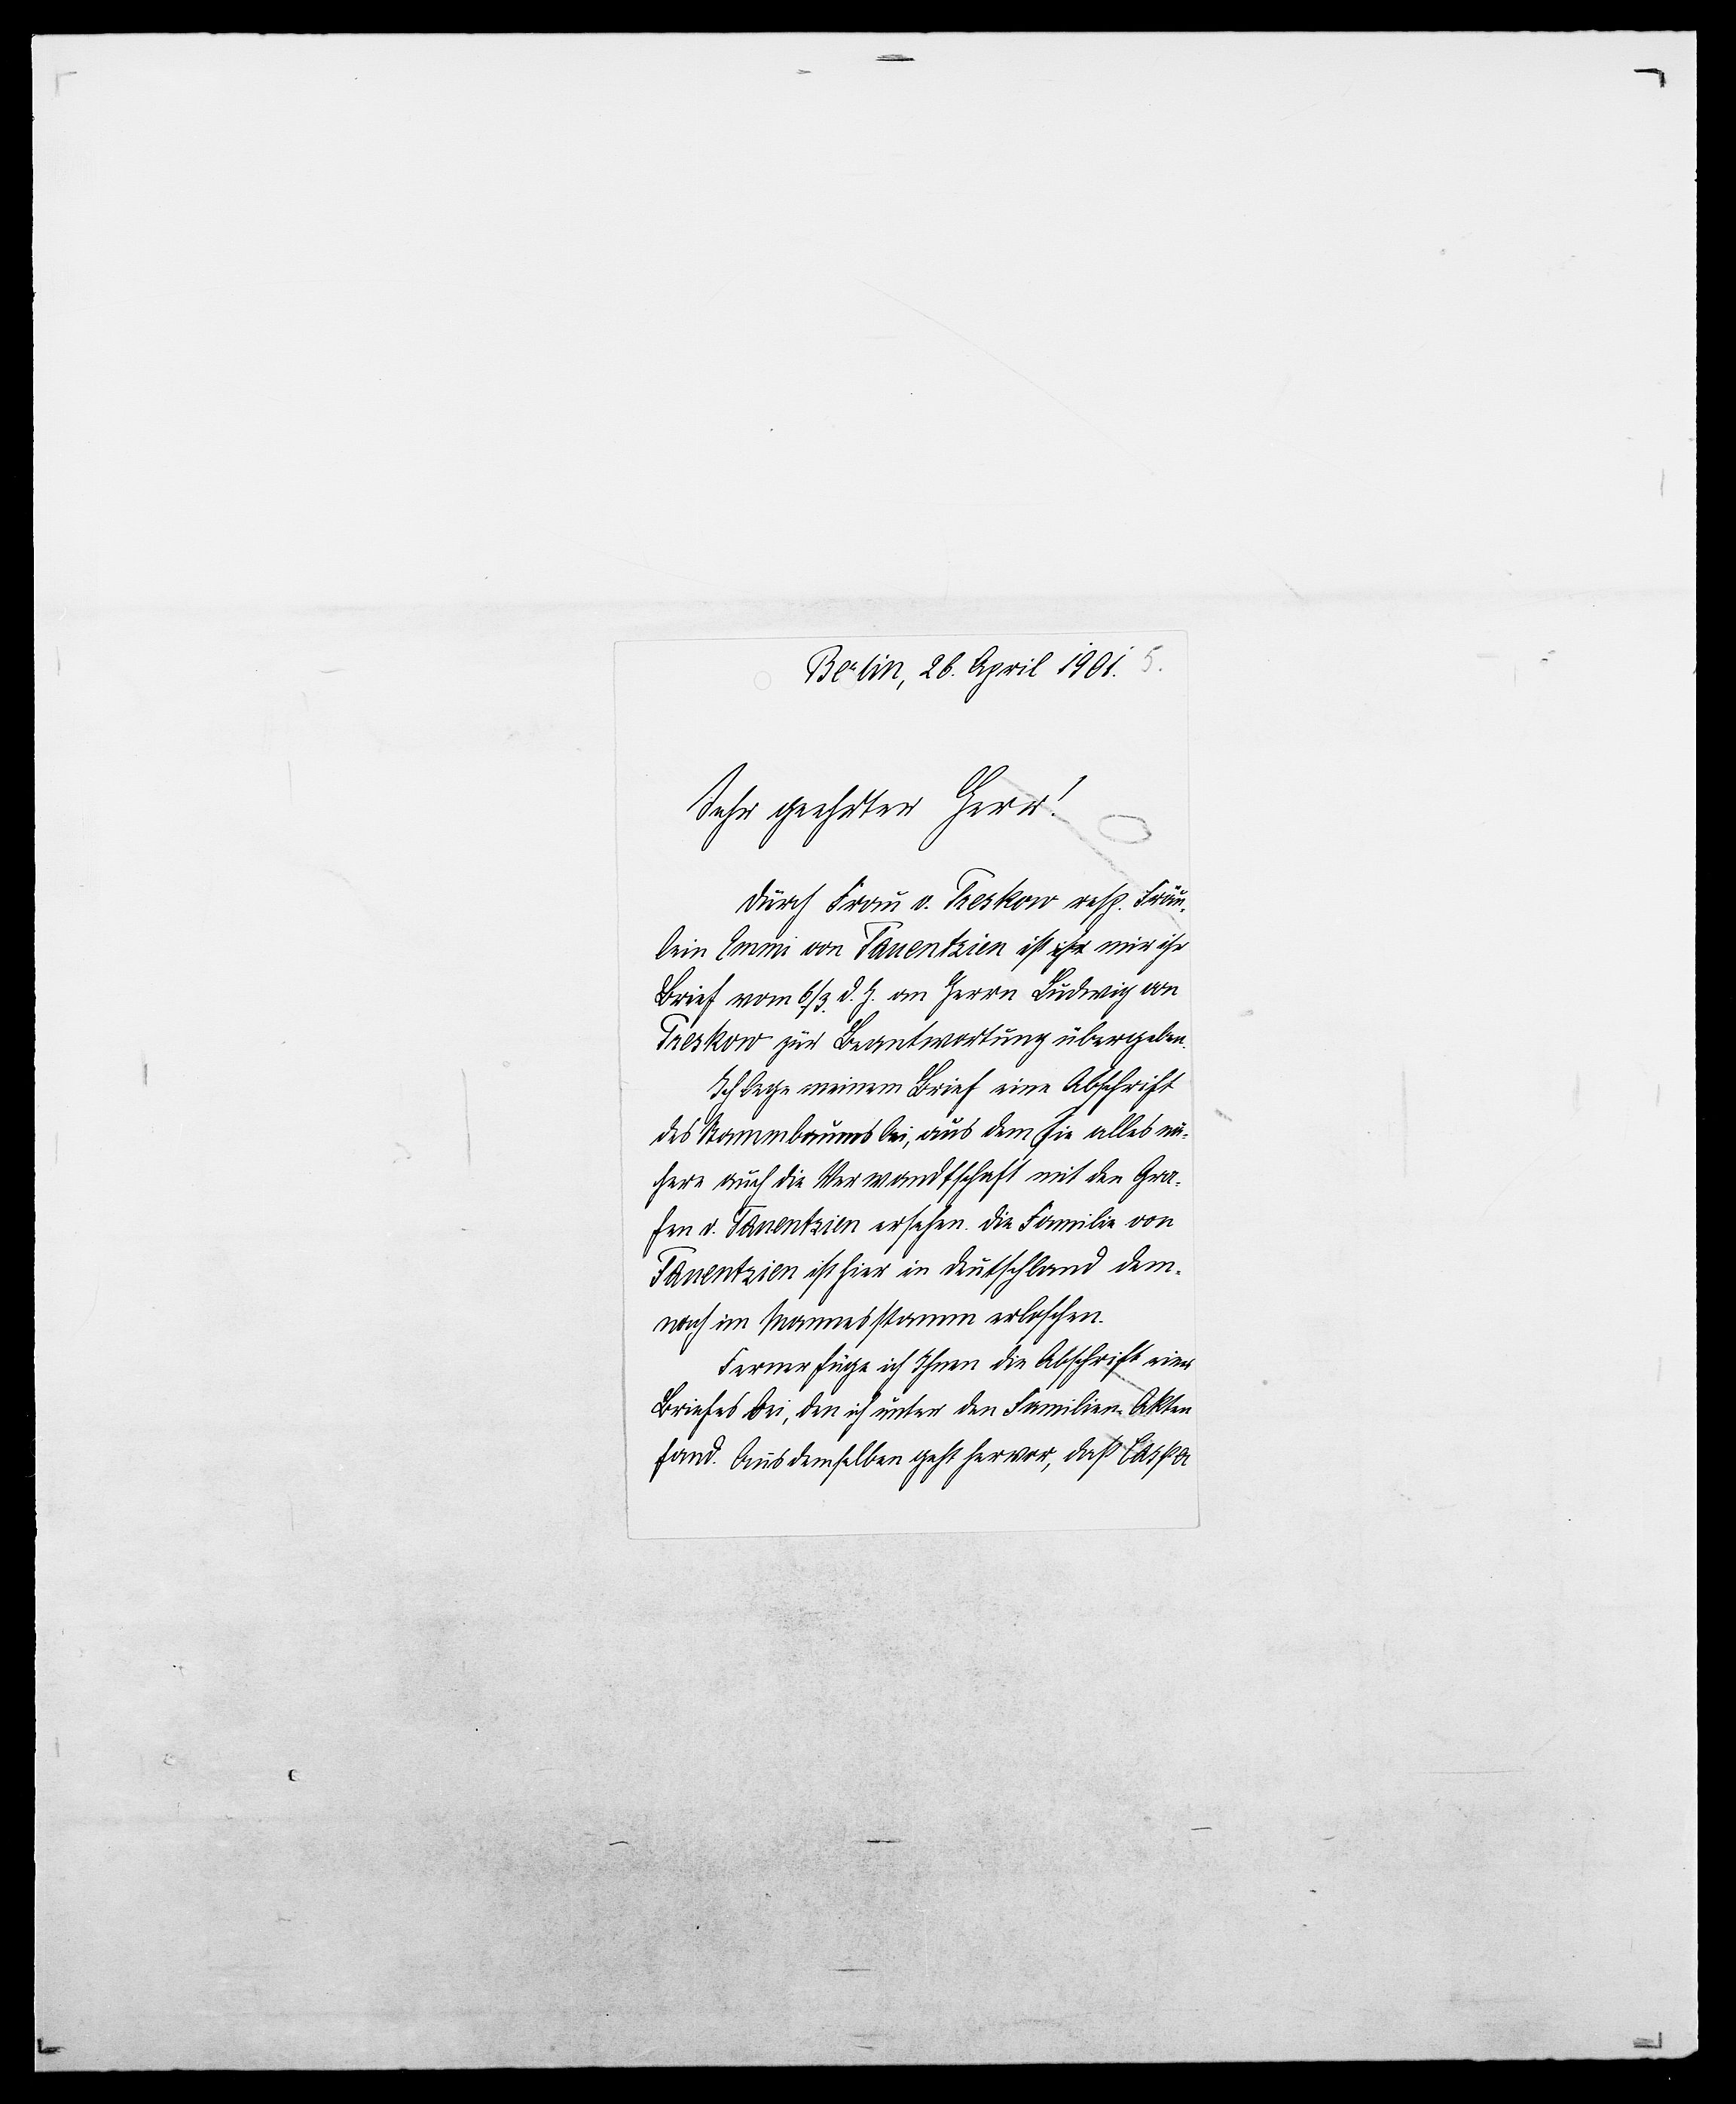 Berlin, 26. April 1901. 5.
Sehr geehrter Herr!
Durch Frau v. Treskow resp. Fräu-
lein Emmi von Tauentzien ist mir ihr
Brief vom 6/3. d. J. an Herrn Ludwig von
Treskow zur Beantwortung übergeben.
Ich lege meinem Brief eine Abschrift
des Stammbaums bei, aus dem Sie alles nä-
here auch die Verwandtschaft mit den Gra-
fen v. Tauentzien ersehen. Die Familie von
Tauentzien ist hier in Deutschland dem-
nach im Mannesstamm erloschen.
Ferner füge ich Ihnen die Abschrift eines
Briefes bei, den ich unter den Familien-Akten
fand. Aus demselben geht hervor, daß